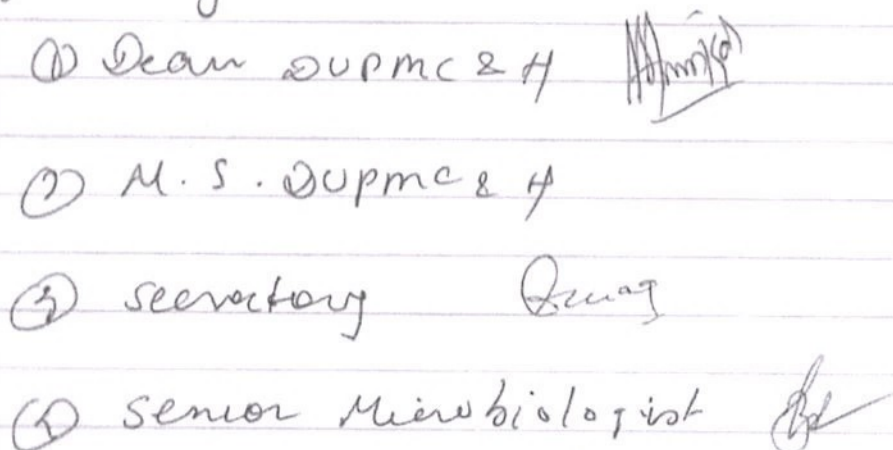 ① Dean DUPMC & H
② M. S. DUPMC & H
③ Secretary
④ Senior Microbiologist